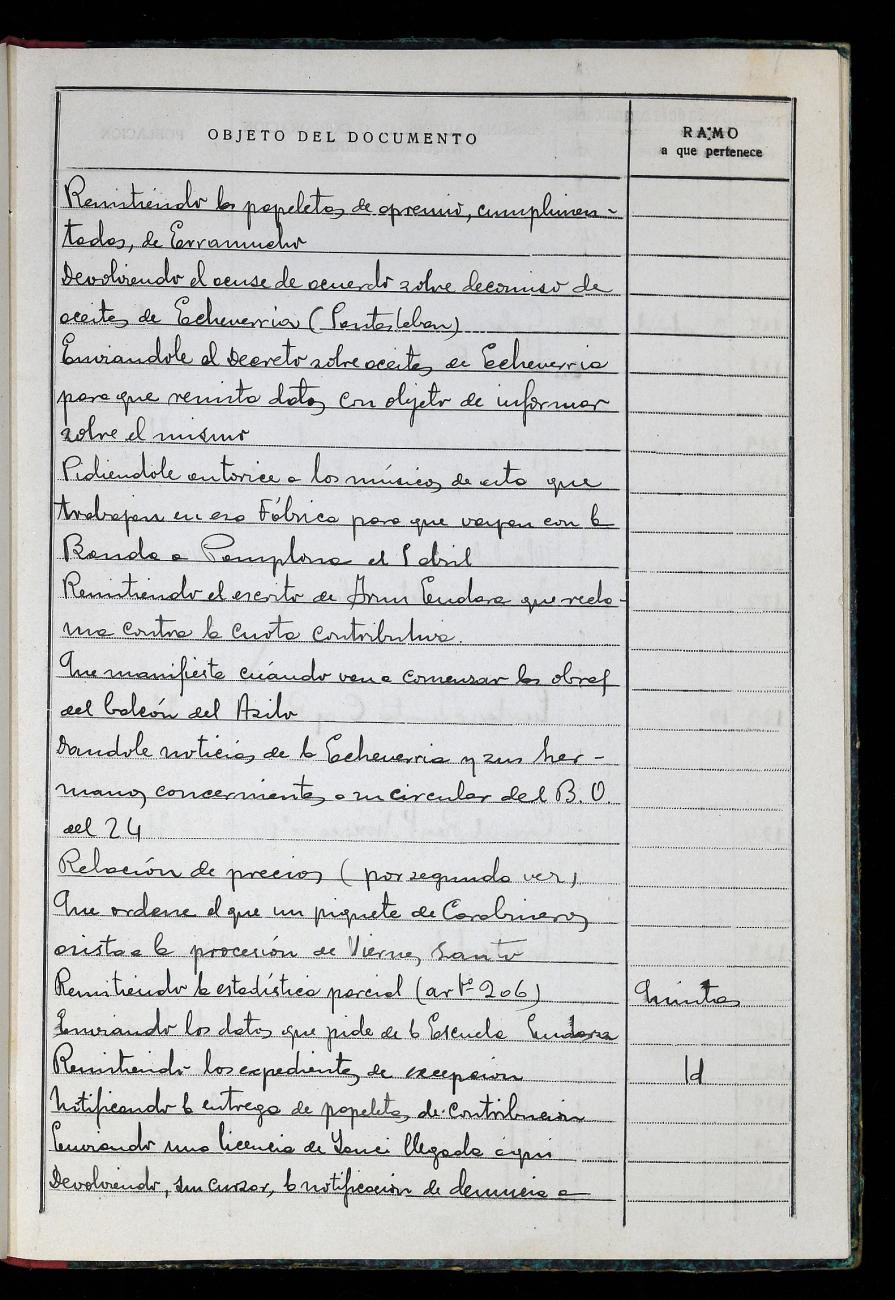 OBJETO DEL DOCUMENTO
RAMO
a que pertenece
Remitiendo las papeletas de apremio, cumplimen-
tadas, de Erramucho
Devolviendo el acuse de acuerdo sobre decomiso de
aceites de Echeverria (Santesteban)
Enviandole el Decreto sobre aceites de Echeverria
para que remita datos con objeto de informar
sobre el mismo
Pidiendole autorice a los músicos de esta que
trabajan en esa Fábrica para que vayan con la
Banda a Pamplona el 1 abril
Remitiendo el escrito de Endara que recla-
ma contra la cuota contributiva.
Que manifieste cuándo van a comenzar las obras
del balcón del Asilo
Dandole noticias de la Echeverria y sus her-
manos concernientes a su circular del B. O.
del 24
Relación de precios (por segunda vez)
Que ordene el que un piquete de Carabineros
asista a la procesión de Viernes Santo
Remitiendo la estadística parcial (artº 206) Quintas
Enviando los datos que pide de la Escuela Endara
Remitiendo los expedientes de excepción Id
Notificando la entrega de papeletas de contribución
Enviando una licencia de Yanci llegada aquí
Devolviendo, sin cursar, la notificación de denuncia a